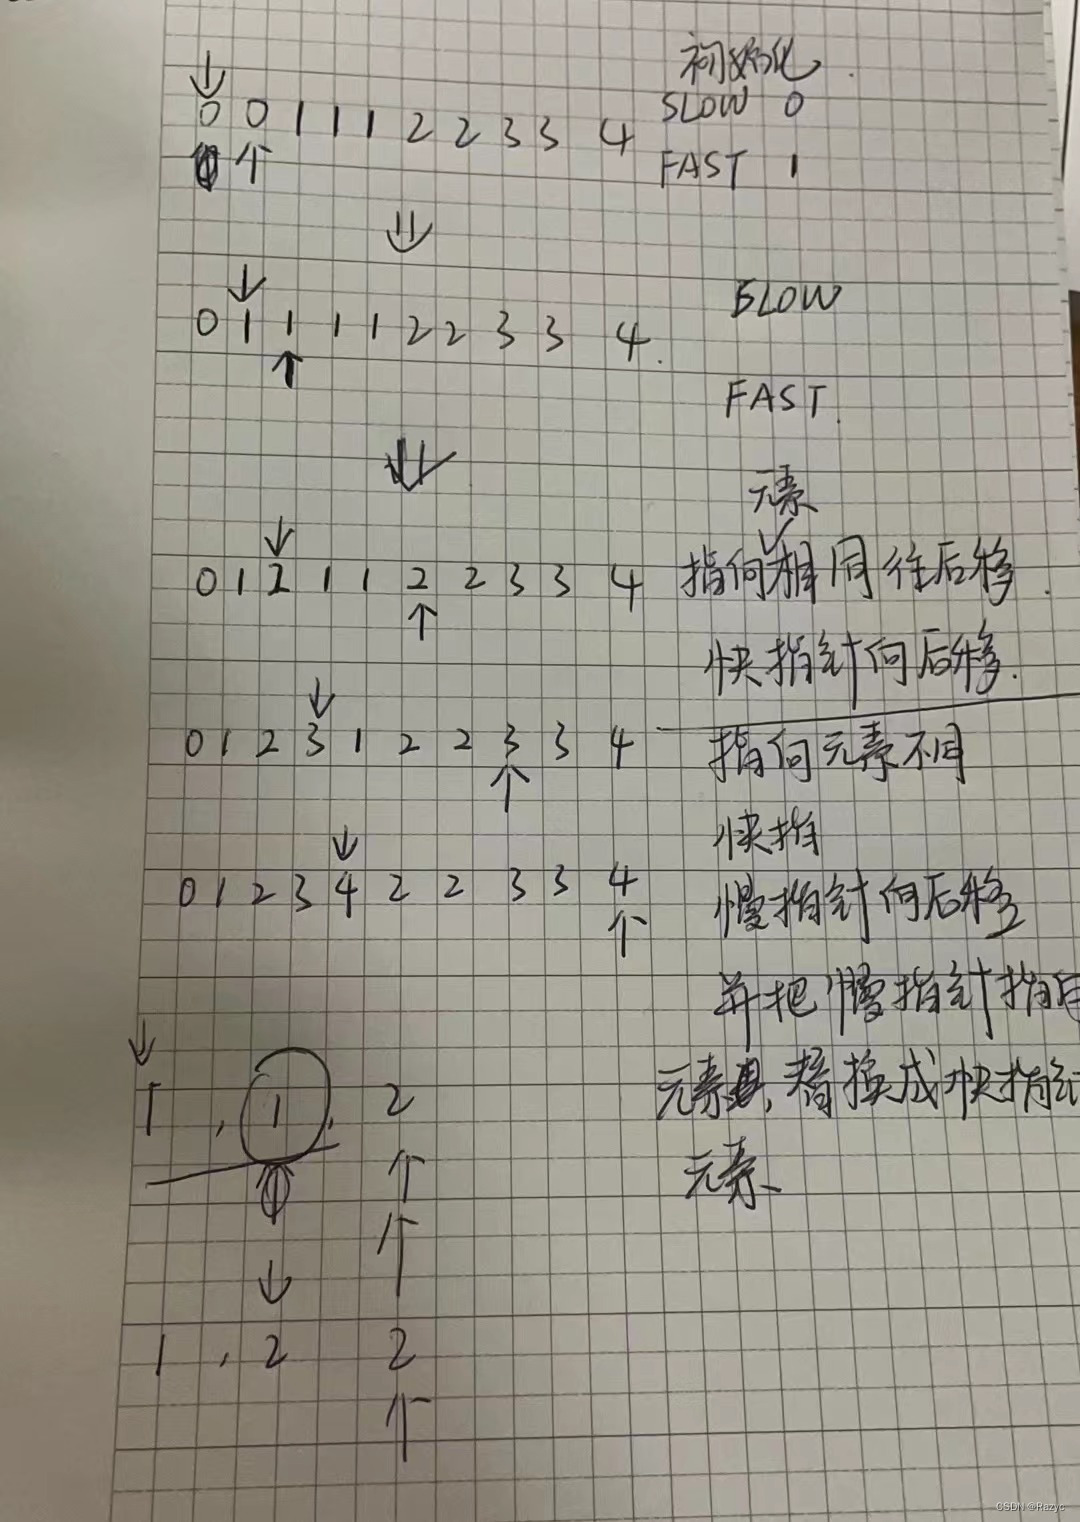 初始化
0 0 1 1 1 2 2 3 3 4
SLOW 0
FAST 1
0 1 1 1 1 2 2 3 3 4.
SLOW
FAST.
元素
0 1 2 1 1 2 2 3 3 4
指向相同往后移.
快指针向后移.
0 1 2 3 1 2 2 3 3 4
指向元素不同
快指
0 1 2 3 4 2 2 3 3 4
慢指针向后移
并把慢指针指向
1 , 1 , 2
元素,替换成快指针
元素
1 , 2 2
CSDN @Razyc